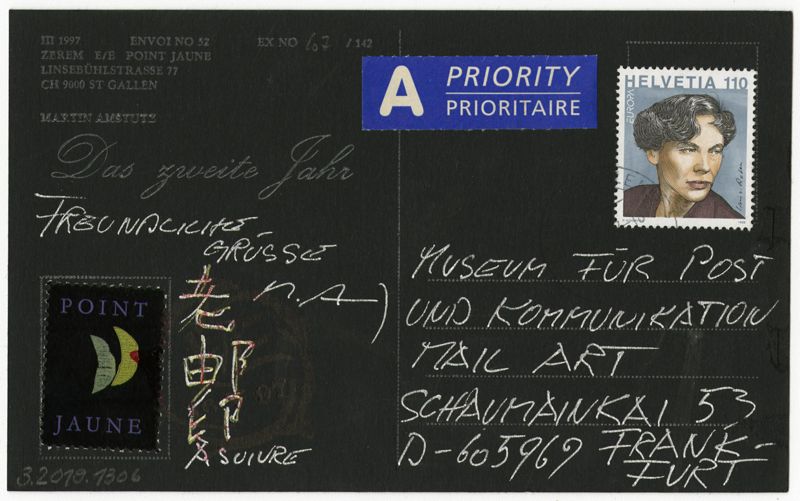 III 1997 ENVOI NO 52 EX NO 107 / 142
ZEREM E/E POINT JAUNE
LINSEBÜHLSTRASSE 77
CH 9000 ST GALLEN
MARTIN AMSTUTZ
Das zweite Jahr
FREUNDLICHE
GRÜSSE
n.A—)
老
邮
印
A SUIVRE
POINT
JAUNE
3.2019.1306
A PRIORITY
PRIORITAIRE
HELVETIA 110
EUROPA
MUSEUM FÜR POST
UND KOMMUNIKATION
MAIL ART
SCHAUMAINKAI 53
D-605969 FRANK-
FURT